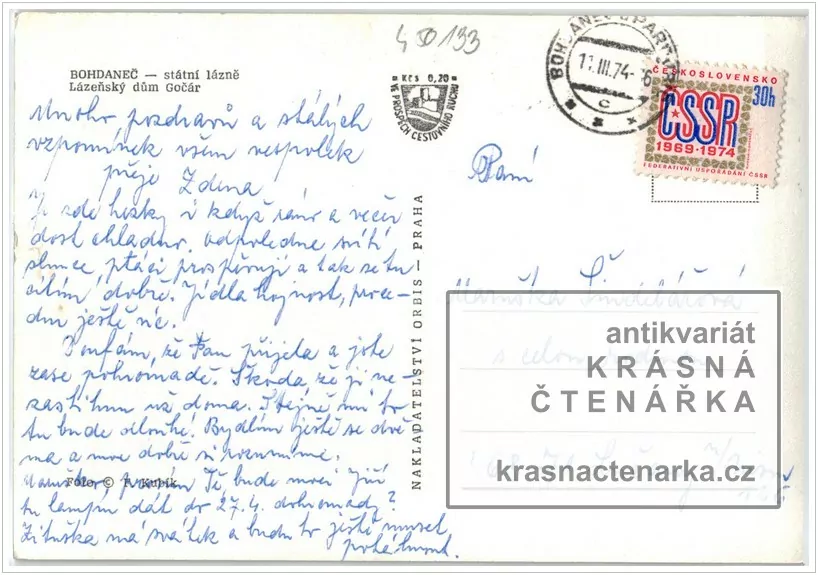 450133
BOHDANEČ — státní lázně
Lázeňský dům Gočár
Kčs 0,20
VE PROSPĚCH CESTOVNÍHO RUCHU
BOHDANEČ U PARDUBIC
11.III.74-16
c
ČESKOSLOVENSKO
30h
ČSSR
1969·1974
FEDERATIVNÍ USPOŘÁDÁNÍ ČSSR
Mnoho pozdravů a stálých
vzpomínek všem vespolek
přeje Zdena
Je zde hezky i když ráno a večer
dost chladno. Odpoledne svítí
slunce, ptáci prospěvují a tak se tu
cítím dobře. Jídla hojnost, proce-
dur ještě ne.
Doufám, že Fan přijela a jste
zase pohromadě. Škoda, že ji ne-
zastihnu už doma. Stejně mi to
tu bude dlouhé. Bydlím ještě se dvě
ma a moc dobře si rozumíme.
Maruško, prosím Tě bude moci Jiří
tu lampu dát do 27.4. dohromady?
Zituška má svátek a budu to ještě muset
Foto © F. Kubík
NAKLADATELSTVÍ ORBIS — PRAHA
Paní
Maruška
antikvariát
KRÁSNÁ
ČTENÁŘKA
krasnactenarka.cz